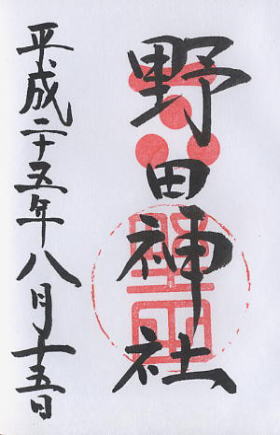 野田神社
平成二十五年八月十五日